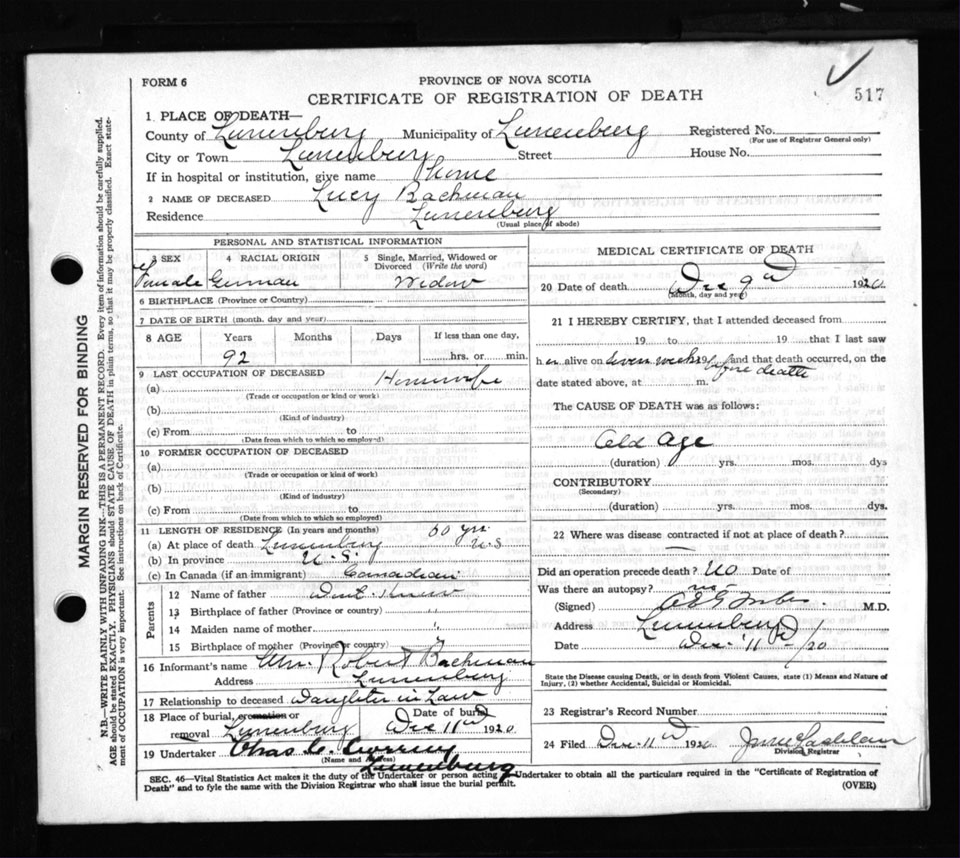 FORM 6
PROVINCE OF NOVA SCOTIA
CERTIFICATE OF REGISTRATION OF DEATH
517
1 PLACE OF DEATH—
County of Lunenburg Municipality of Lunenburg Registered No.
(For use of Registrar General only)
City or Town Lunenburg Street House No.
If in hospital or institution, give name Home
2 NAME OF DECEASED Lucy Bachman
Residence Lunenburg
(Usual place of abode)
PERSONAL AND STATISTICAL INFORMATION
3 SEX 4 RACIAL ORIGIN 5 Single, Married, Widowed or Divorced (Write the word)
Female German Widow
6 BIRTHPLACE (Province or Country)
7 DATE OF BIRTH (month, day and year)
8 AGE Years Months Days If less than one day,
92 hrs. or min.
9 LAST OCCUPATION OF DECEASED Housewife
(a)
(Trade or occupation or kind or work)
(b)
(Kind of industry)
(c) From to
(Date from which to which so employed)
10 FORMER OCCUPATION OF DECEASED
(a)
(Trade or occupation or kind of work)
(b)
(Kind of industry)
(c) From to
(Date from which to which so employed)
11 LENGTH OF RESIDENCE (In years and months) 60 yrs.
(a) At place of death Lunenburg
(b) In province
(c) In Canada (if an immigrant) Canadian
Parents
12 Name of father
13 Birthplace of father (Province or country) "
14 Maiden name of mother "
15 Birthplace of mother (Province or country) "
16 Informant's name Mrs. Robert Bachman
Address Lunenburg
17 Relationship to deceased Daughter in Law
18 Place of burial, cremation or removal Lunenburg Date of burial Dec 11th 1920
19 Undertaker Chas. C.
(Name and Address)
Lunenburg
MEDICAL CERTIFICATE OF DEATH
20 Date of death Dec 9th 1920
(Month, day and year)
21 I HEREBY CERTIFY, that I attended deceased from
19 to 19 that I last saw
her alive on seven weeks 19 before death and that death occurred, on the
date stated above, at m.
The CAUSE OF DEATH was as follows:
Old Age
(duration) yrs. mos. dys
CONTRIBUTORY
(Secondary)
(duration) yrs. mos. dys.
22 Where was disease contracted if not at place of death?
—
Did an operation precede death? No Date of
Was there an autopsy? no
(Signed) M.D.
Address Lunenburg
Date Dec. 11th /20
State the Disease causing Death, or in death from Violent Causes, state (1) Means and Nature of
Injury, (2) whether Accidental, Suicidal or Homicidal.
23 Registrar's Record Number
24 Filed Dec. 11th 1920
Division Registrar
SEC. 46—Vital Statistics Act makes it the duty of the Undertaker or person acting as Undertaker to obtain all the particulars required in the "Certificate of Registration of
Death" and to fyle the same with the Division Registrar who shall issue the burial permit.
(OVER)
MARGIN RESERVED FOR BINDING
N.B.—WRITE PLAINLY WITH UNFADING INK—THIS IS A PERMANENT RECORD. Every item of information should be carefully supplied.
AGE should be stated EXACTLY. PHYSICIANS should STATE CAUSE OF DEATH in plain terms, so that it may be properly classified. Exact statement of OCCUPATION is very important. See instructions on back of Certificate.